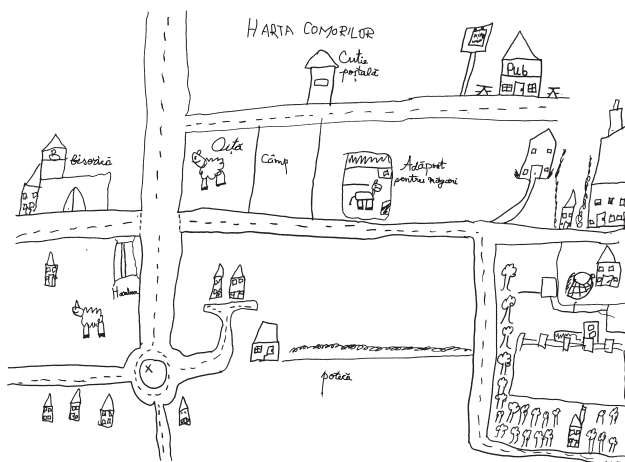 HARTA COMORILOR
Cutie
poștală
Pub
biserică
Oiță
Câmp
Adăpost
pentru măgari
potecă
X